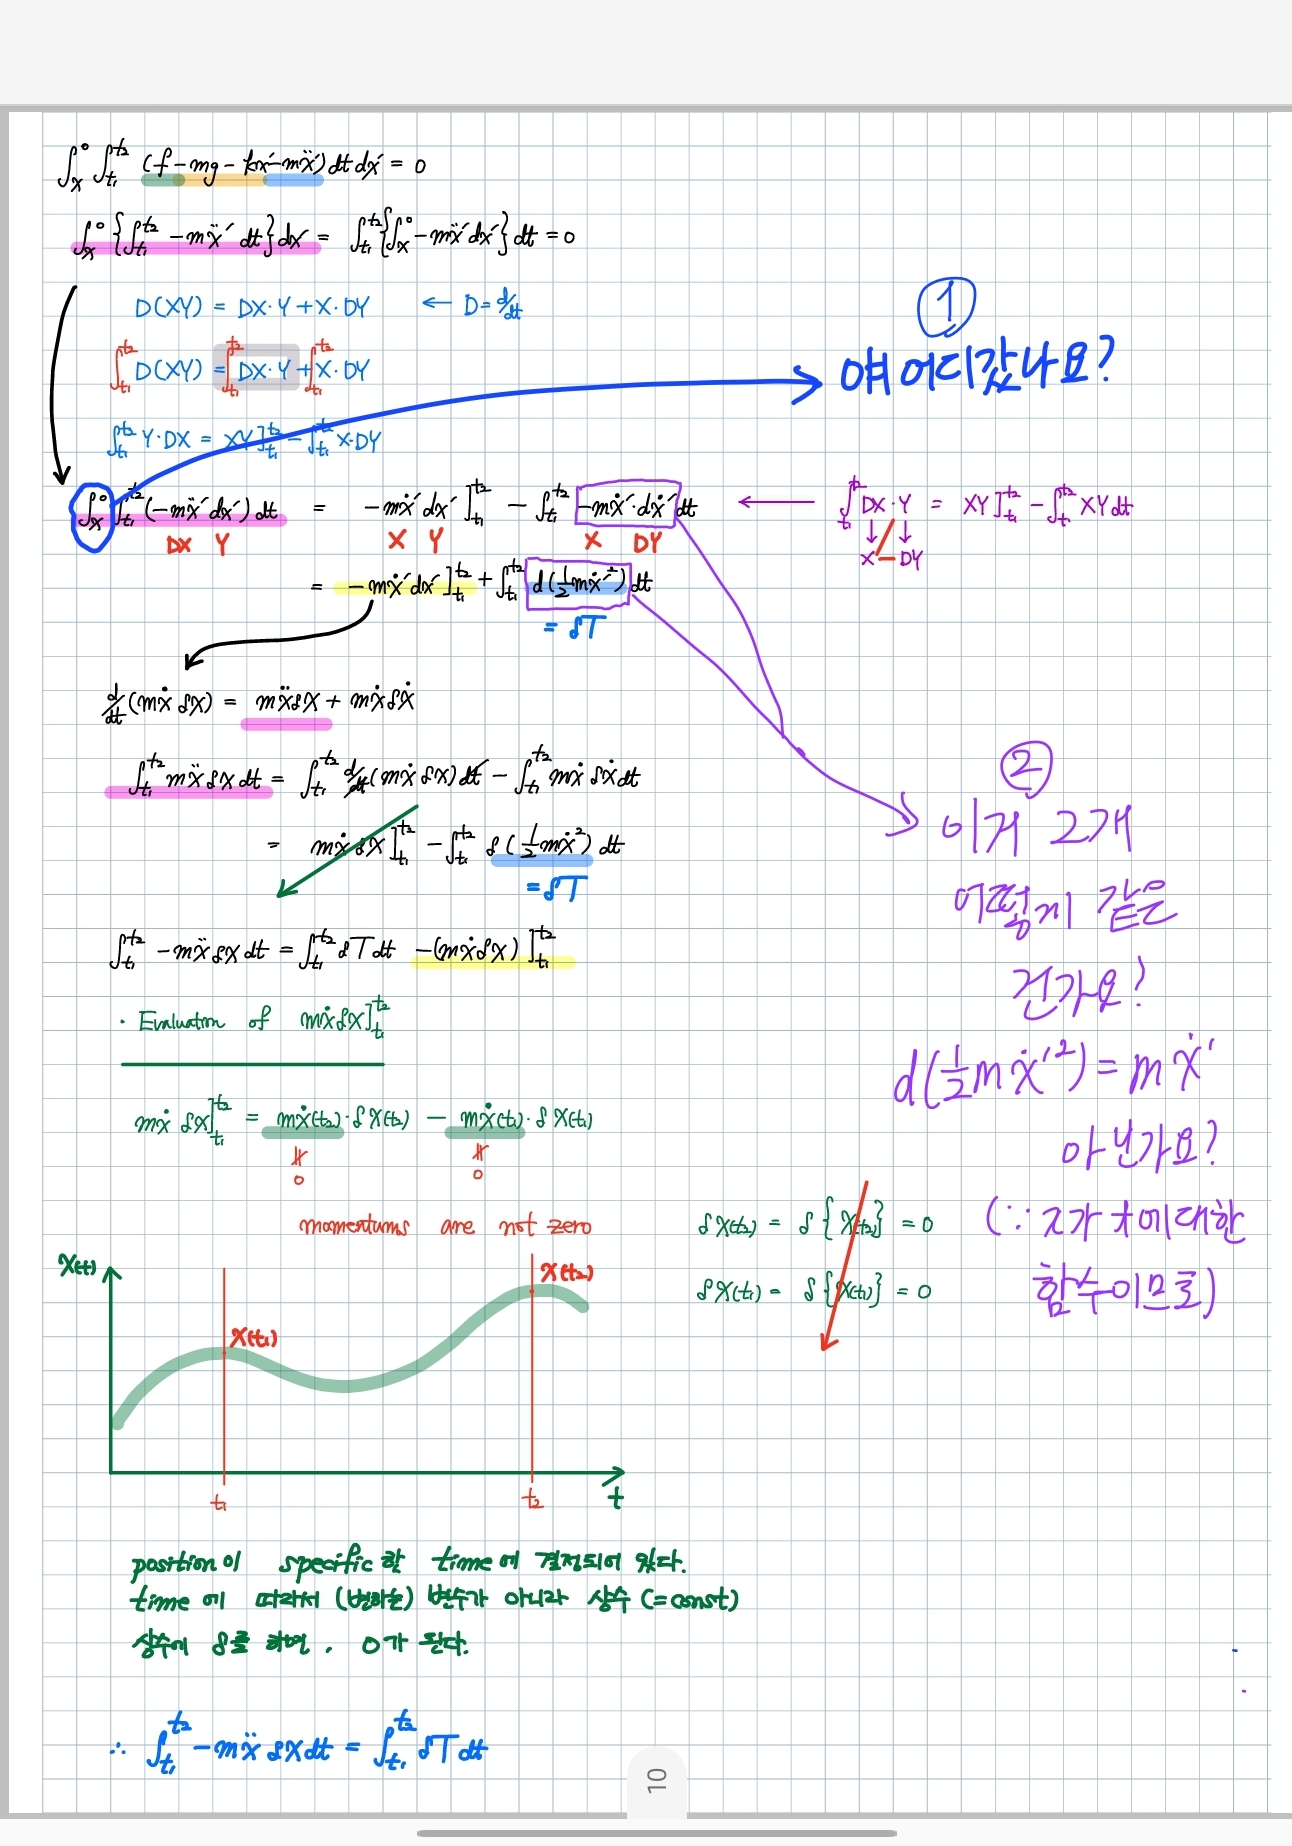 ∫ₓ⁰ ∫ₜ₁ᵗ² (f - mg - kx′ - mẍ′) dt dx′ = 0
∫ₓ⁰ {∫ₜ₁ᵗ² - mẍ′ dt} dx′ = ∫ₜ₁ᵗ² {∫ₓ⁰ - mẍ′ dx′} dt = 0
D(XY) = DX·Y + X·DY ← D = d/dt
①
∫ₜ₁ᵗ² D(XY) = ∫ₜ₁ᵗ² DX·Y + ∫ₜ₁ᵗ² X·DY
얘 어디갔나요?
∫ₜ₁ᵗ² Y·DX = XY]ₜ₁ᵗ² - ∫ₜ₁ᵗ² X·DY
∫ₓ⁰ ∫ₜ₁ᵗ² (-mẍ′dx′) dt = -mẋ′dx′]ₜ₁ᵗ² - ∫ₜ₁ᵗ² -mẋ′·dẋ′ dt ← ∫ₜ₁ᵗ² DX·Y = XY]ₜ₁ᵗ² - ∫ₜ₁ᵗ² XY dt
DX Y X Y X DY
X DY
= -mẋ′dx′]ₜ₁ᵗ² + ∫ₜ₁ᵗ² d(½mẋ′²) dt
= δT
d/dt (mẋ δx) = mẍδx + mẋδẋ
∫ₜ₁ᵗ² mẍ δx dt = ∫ₜ₁ᵗ² d/dt (mẋ δx) dt - ∫ₜ₁ᵗ² mẋ δẋ dt
= mẋ δx]ₜ₁ᵗ² - ∫ₜ₁ᵗ² δ(½mẋ²) dt
= δT
②
이거 2개
어떻게 같은
건가요?
d(½mẋ′²) = mẋ′
아닌가요?
(∵ x가 t에대한
함수이므로)
∫ₜ₁ᵗ² -mẍ δx dt = ∫ₜ₁ᵗ² δT dt -(mẋδx)]ₜ₁ᵗ²
· Evaluation of mẋδx]ₜ₁ᵗ²
mẋ δx]ₜ₁ᵗ² = mẋ(t₂)·δx(t₂) - mẋ(t₁)·δx(t₁)
∦ ∦
0 0
momentums are not zero
δx(t₂) = δ{x(t₂)} = 0
δx(t₁) = δ{x(t₁)} = 0
x(t)
x(t₂)
x(t₁)
t₁ t₂ t
position이 specific한 time에 결정되어 있다.
time에 따라서 (변하는) 변수가 아니라 상수 (=const)
상수에 δ를 하면, 0가 된다.
∴ ∫ₜ₁ᵗ² -mẍ δx dt = ∫ₜ₁ᵗ² δT dt
10